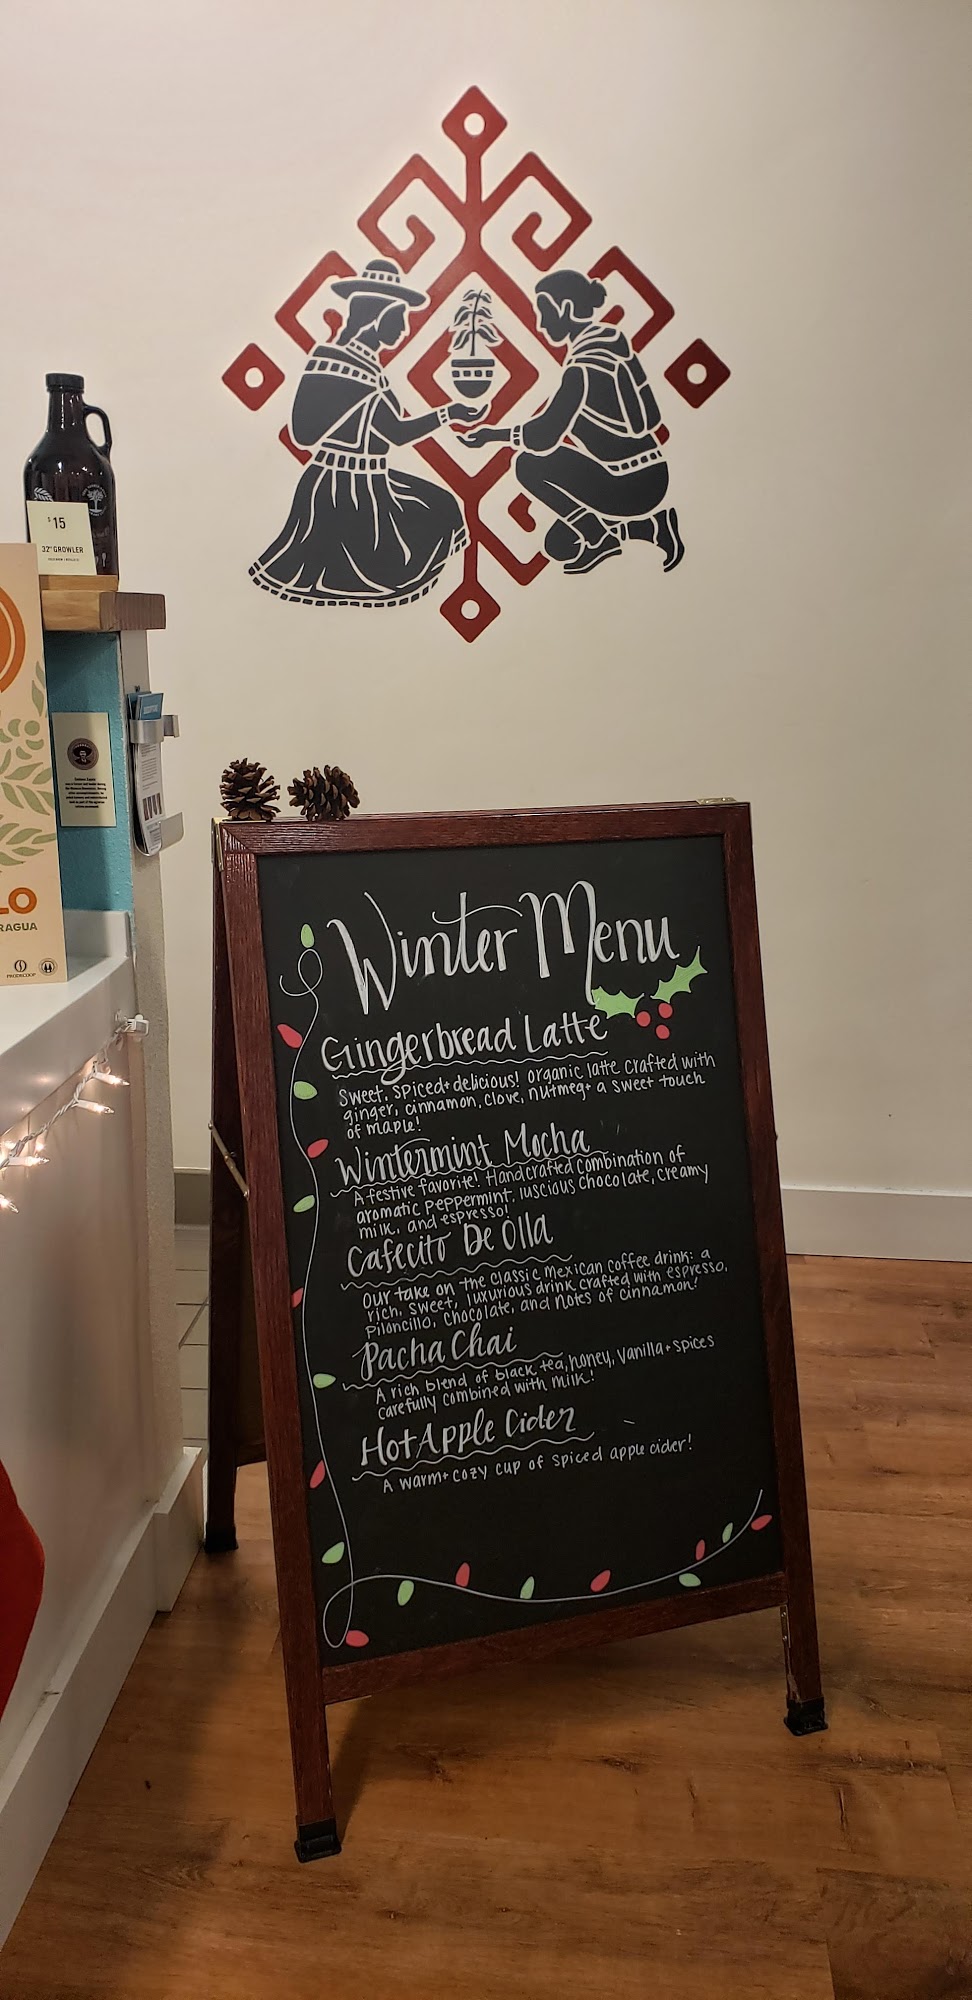 $15
32oz GROWLER
LO
RAGUA
PRODECOOP
Winter Menu
Gingerbread Latte
Sweet, spiced + delicious! Organic latte crafted with
ginger, cinnamon, clove, nutmeg + a sweet touch
of maple!
Wintermint Mocha
A festive favorite! Handcrafted combination of
aromatic peppermint, luscious chocolate, creamy
milk, and espresso!
Cafecito De Olla
Our take on the classic Mexican coffee drink: a
rich, sweet, luxurious drink crafted with espresso,
Piloncillo, chocolate, and notes of cinnamon!
Pacha Chai
A rich blend of black tea, honey, vanilla + spices
carefully combined with milk!
Hot Apple Cider
A warm + cozy cup of spiced apple cider!